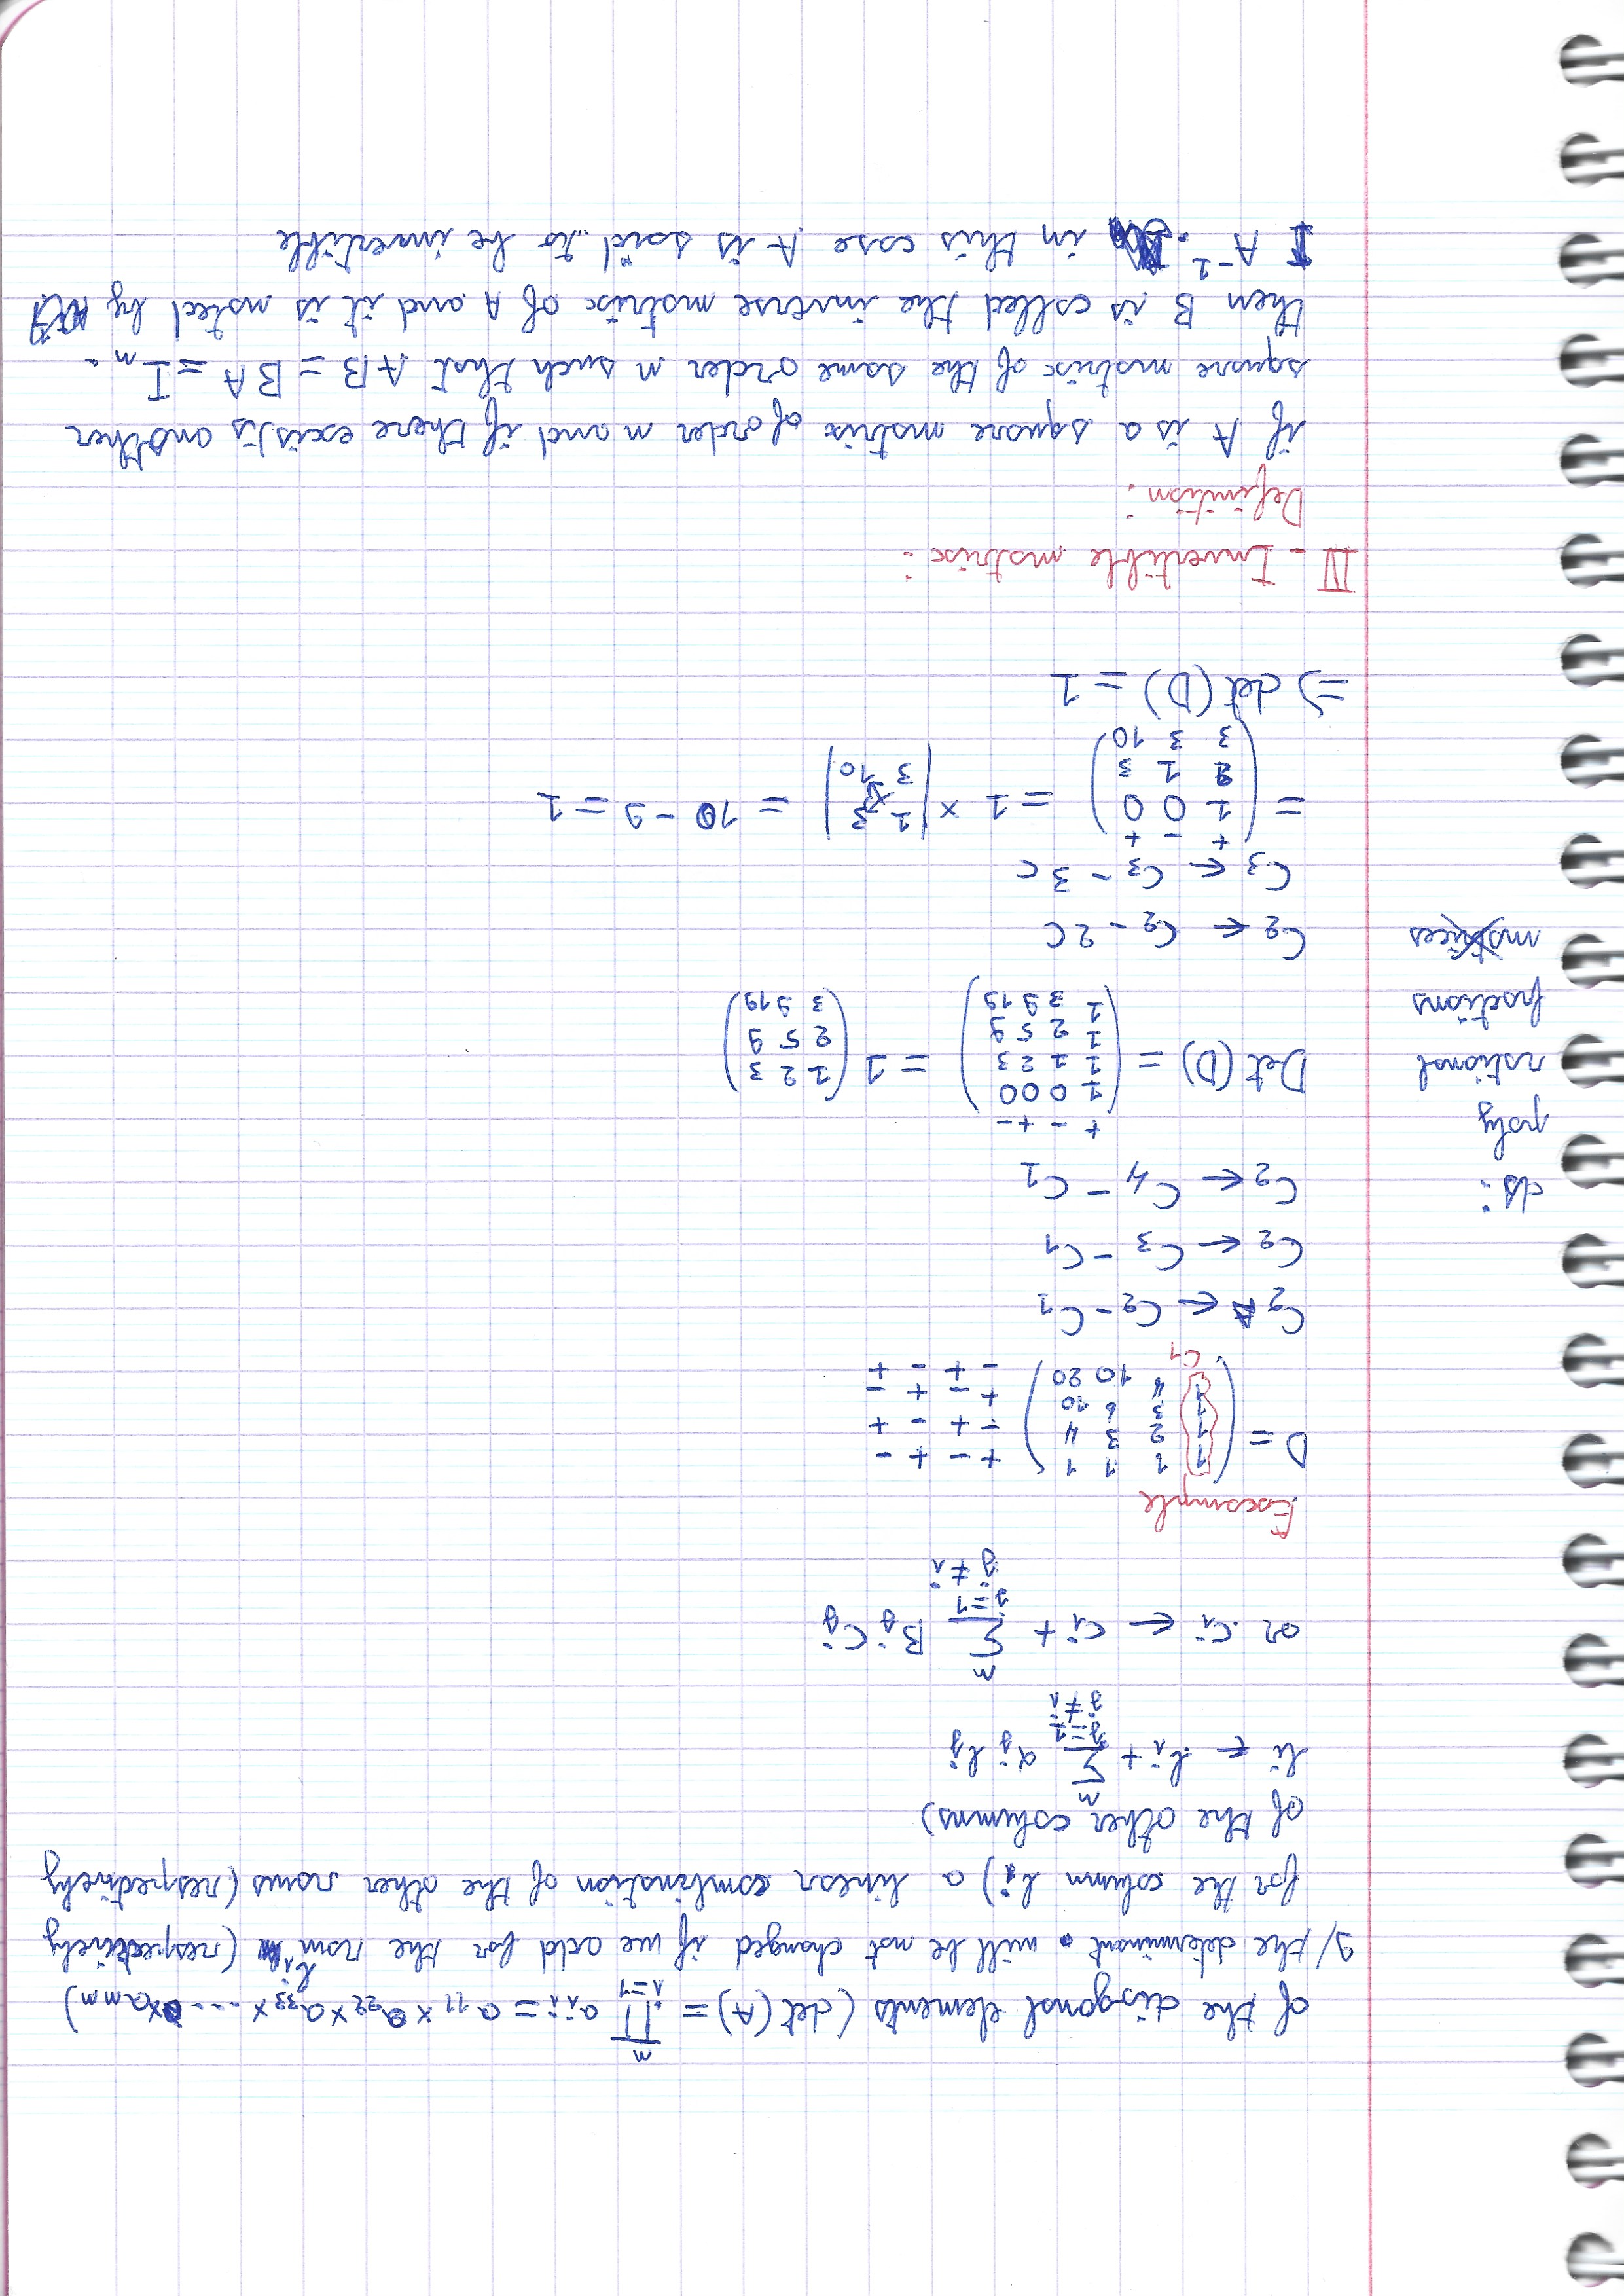 of the diagonal elements (det(A) = ∏ⁿᵢ₌₁ aᵢᵢ = a₁₁ × a₂₂ × a₃₃ × .... × aₙₙ)
9/ the determinant will be not changed if we add for the row lᵢ (respectively
for the column lᵢ) a linear combination of the other rows (respectively
of the other columns)
li ← lᵢ + ∑ⁿ αⱼ lⱼ
j=1
j≠i
or cᵢ ← cᵢ + ∑ⁿ Bⱼ Cⱼ
j=1
j≠i
Example
D = ( 1 1 1 1 + - + -
1 2 3 4 - + - +
1 3 6 10 + - + -
1 4 10 20 ) - + - +
C₁
C₂ ← C₂ - C₁
C₂ ← C₃ - C₁
C₂ ← C₄ - C₁
ds:
poly
rational
fractions
matrices
+ - + -
Det(D) = ( 1 0 0 0 = 1 ( 1 2 3
1 1 2 3 2 5 9
1 2 5 9 3 9 19 )
1 3 9 19 )
C₂ ← C₂ - 2C
C₃ ← C₃ - 3c
+ - +
= ( 1 0 0 = 1 × | 1 3 | = 10 - 9 = 1
2 1 3 | 3 10 |
3 3 10 )
=> det(D) = 1
IV - Invertible matrix :
Definition :
if A is a square matrix of order n and if there exists another
square matrix of the same order n such that AB = BA = Iₙ .
then B is called the inverse matrix of A and it is noted by
A⁻¹ . in this case A is said to be invertible